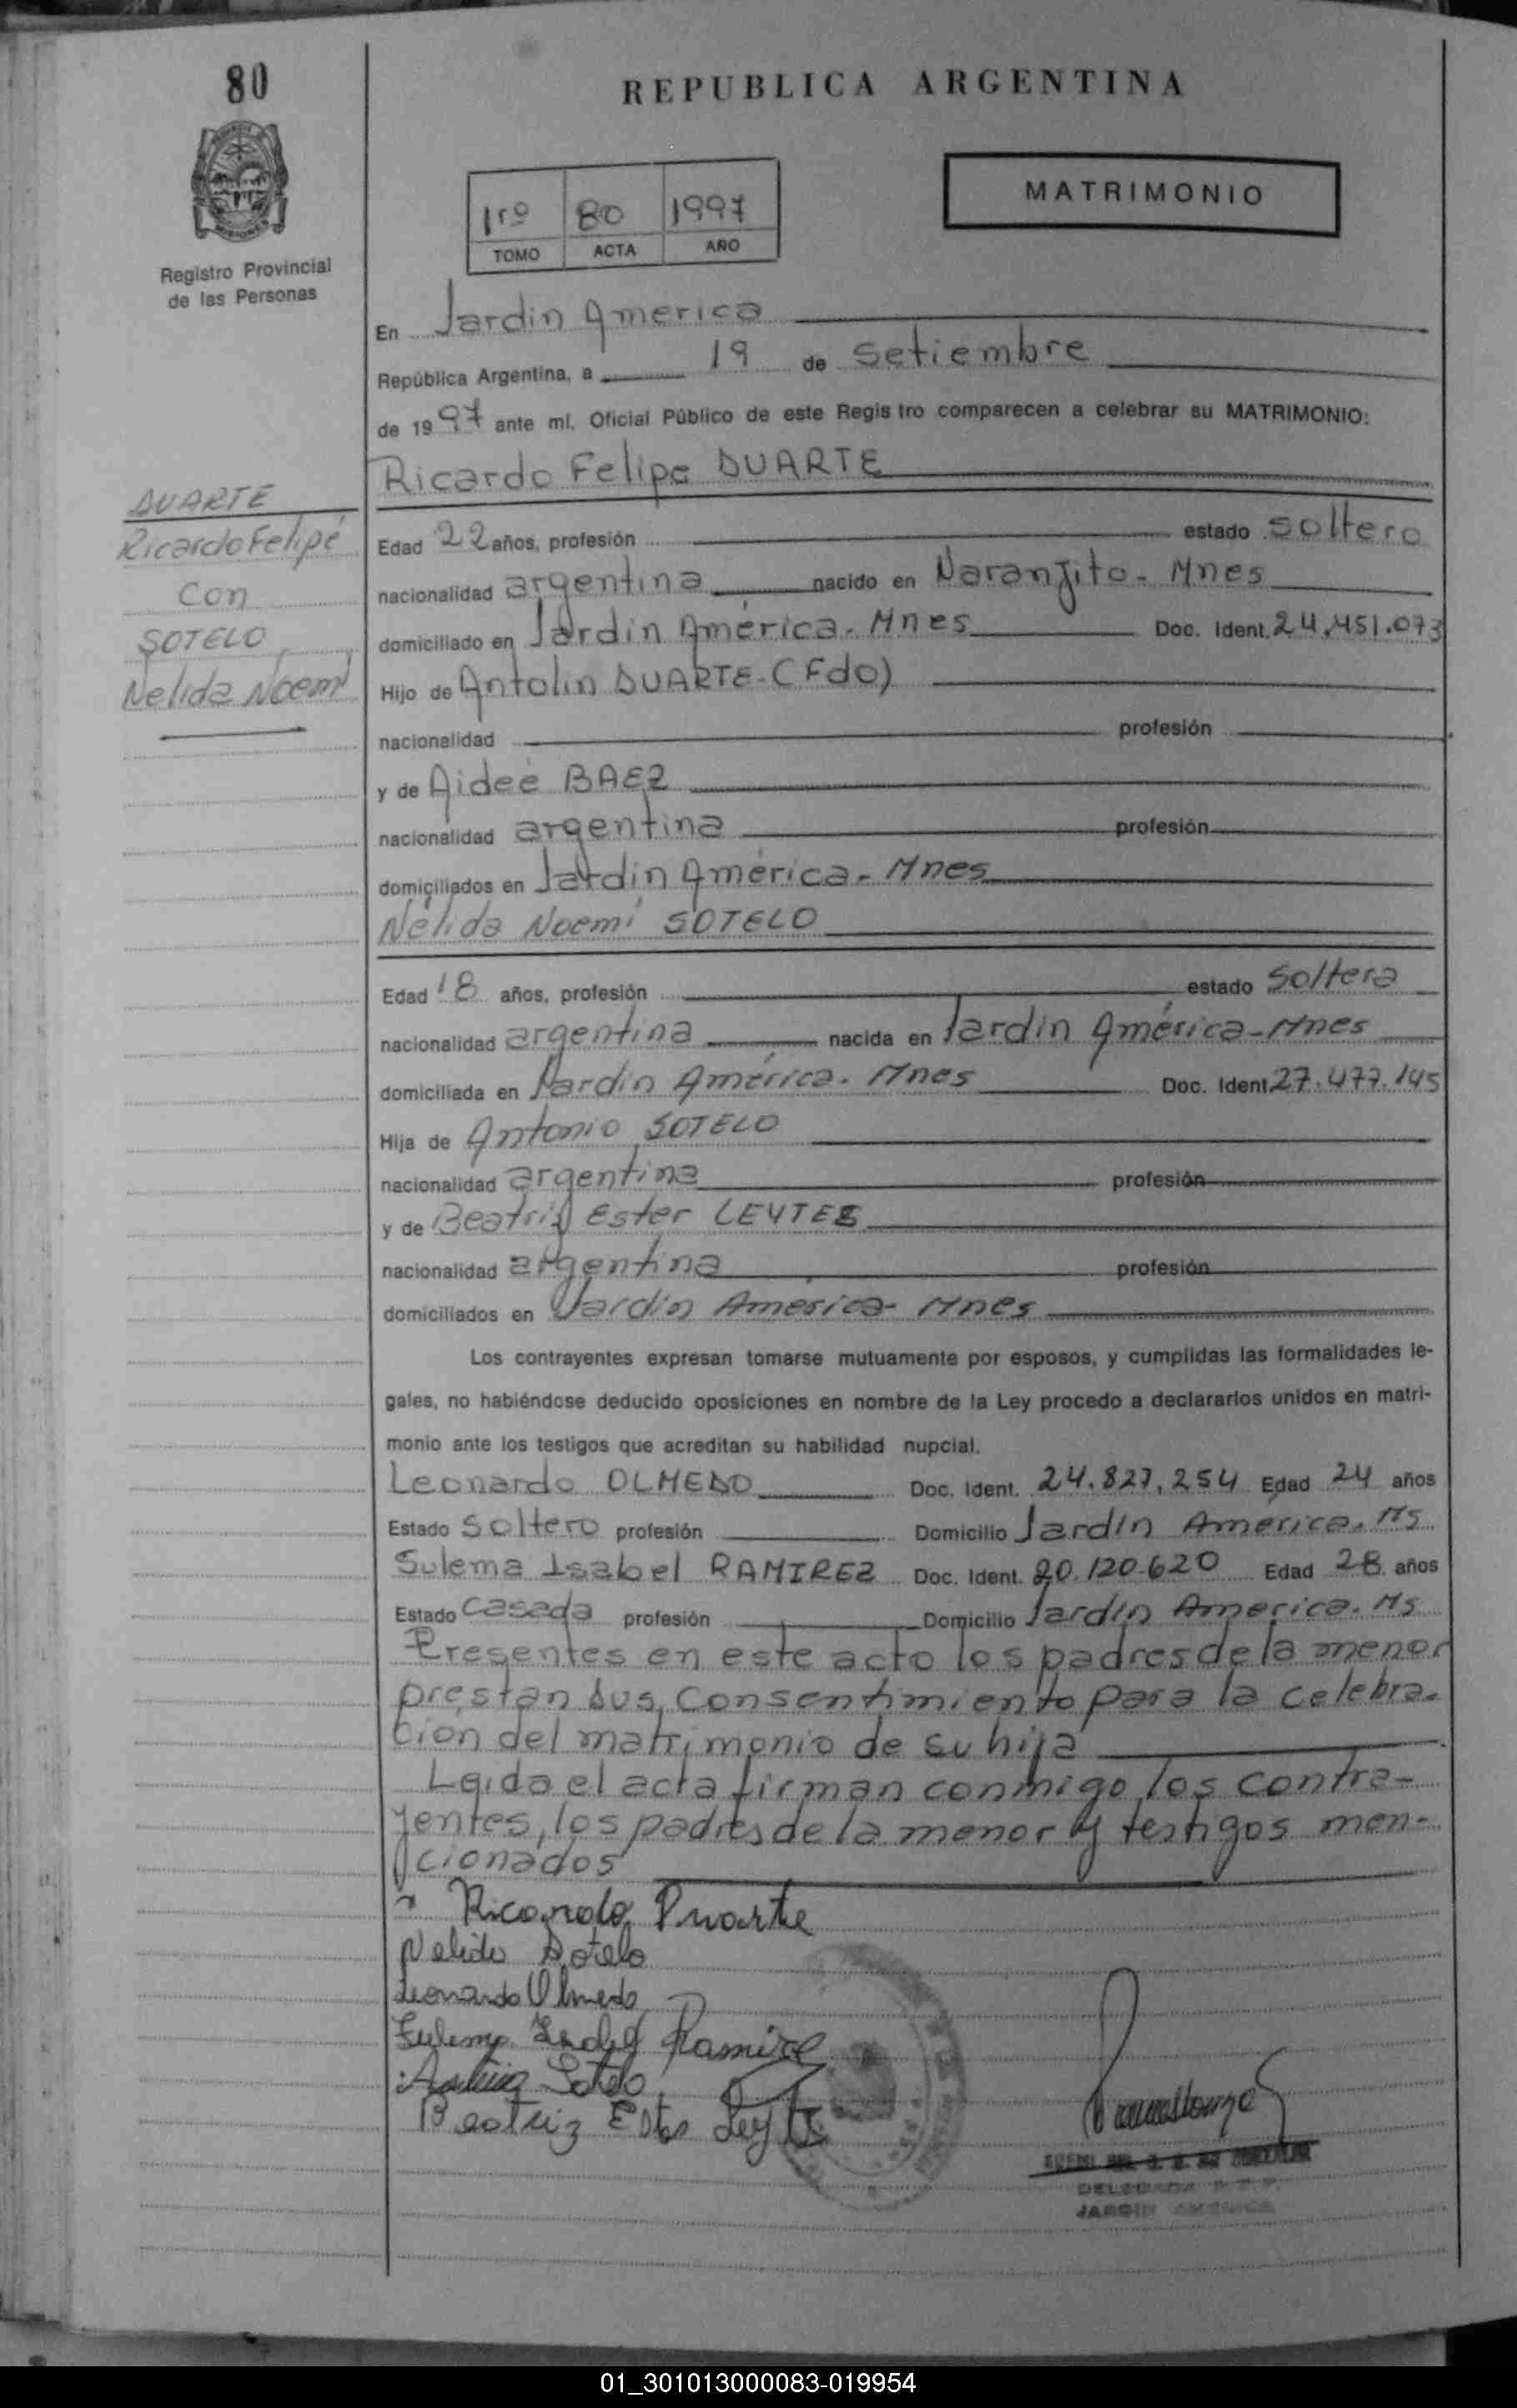 80
REPUBLICA ARGENTINA
MATRIMONIO
1rº 80 1997
TOMO ACTA AÑO
Registro Provincial
de las Personas
En Jardin America
República Argentina, a 19 de setiembre
de 1997 ante mí, Oficial Público de este Registro comparecen a celebrar su MATRIMONIO:
Ricardo Felipe DUARTE
DUARTE
Ricardo Felipe
Con
SOTELO
Nelida Noemí
Edad 22 años, profesión estado soltero
nacionalidad argentina nacido en Naranjito - Mnes
domiciliado en Jardin América - Mnes Doc. Ident. 24.451.073
Hijo de Antolin DUARTE - (Fdo)
nacionalidad profesión
y de Aidee BAEZ
nacionalidad argentina profesión
domiciliados en Jardin América - Mnes
Nélida Noemí SOTELO
Edad 18 años, profesión estado soltera
nacionalidad argentina nacida en Jardin América - Mnes
domiciliada en Jardin América - Mnes Doc. Ident. 27.477.145
Hija de Antonio SOTELO
nacionalidad argentina profesión
y de Beatriz Ester LEYTES
nacionalidad argentina profesión
domiciliados en Jardin America - Mnes
Los contrayentes expresan tomarse mutuamente por esposos, y cumplidas las formalidades le-
gales, no habiéndose deducido oposiciones en nombre de la Ley procedo a declararlos unidos en matri-
monio ante los testigos que acreditan su habilidad nupcial.
Leonardo OLMEDO Doc. Ident. 24.827.254 Edad 24 años
Estado soltero profesión Domicilio Jardín América. Ms
Sulema Isabel RAMIREZ Doc. Ident. 20.120.620 Edad 28 años
Estado casada profesión Domicilio Jardín America. Ms
Presentes en este acto los padres de la menor
prestan sus consentimiento para la celebra-
cion del matrimonio de su hija
Leida el acta firman conmigo los contra-
yentes, los padres de la menor y testigos men-
cionados
Ricardo Duarte
Nelida Sotelo
Leonardo Olmedo
Ramirez
Sotelo
Beatriz Ester
DELEGADA
JARDIN AMERICA
01_301013000083-019954